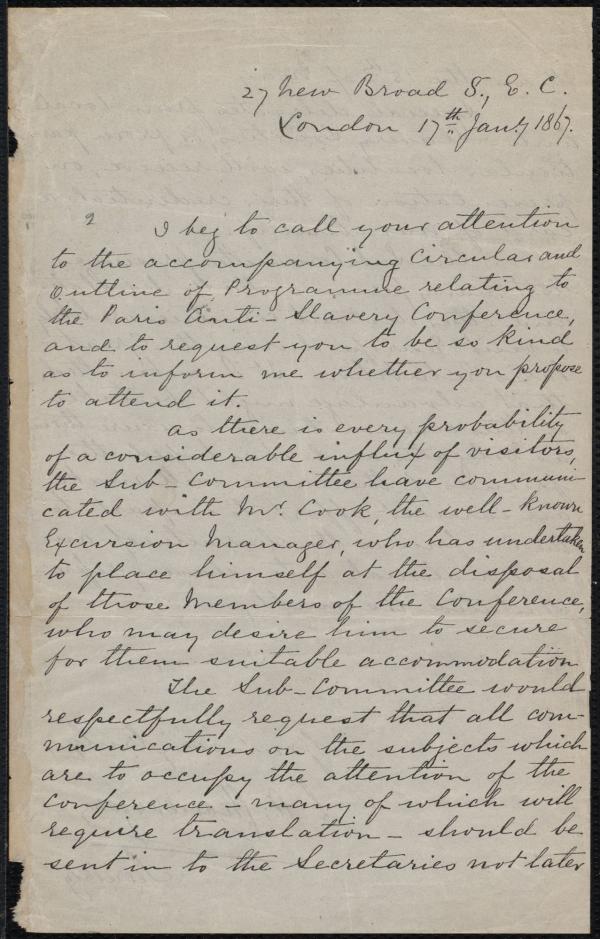 27 New Broad S., E. C.
London 17th Jany 1867.
I beg to call your attention
to the accompanying Circular and
Outline of Programme relating to
the Paris Anti-Slavery Conference,
and to request you to be so kind
as to inform me whether you propose
to attend it.
As there is every probability
of a considerable influx of visitors,
the Sub-Committee have communi-
cated with Mr. Cook, the well-known
Excursion Manager, who has undertaken
to place himself at the disposal
of those Members of the Conference,
who may desire him to secure
for them suitable accommodation
The Sub-Committee would
respectfully request that all com-
munications on the subjects which
are to occupy the attention of the
Conference - many of which will
require translation - should be
sent in to the Secretaries not later